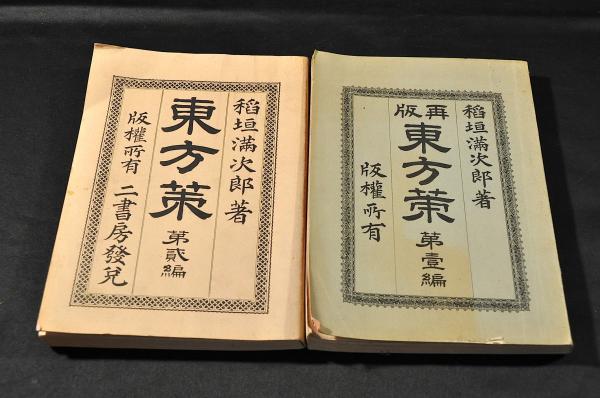 稻垣滿次郎著
東方策
第貳編
版權所有
二書房發兌
稻垣滿次郎著
再版
東方策
第壹編
版權所有